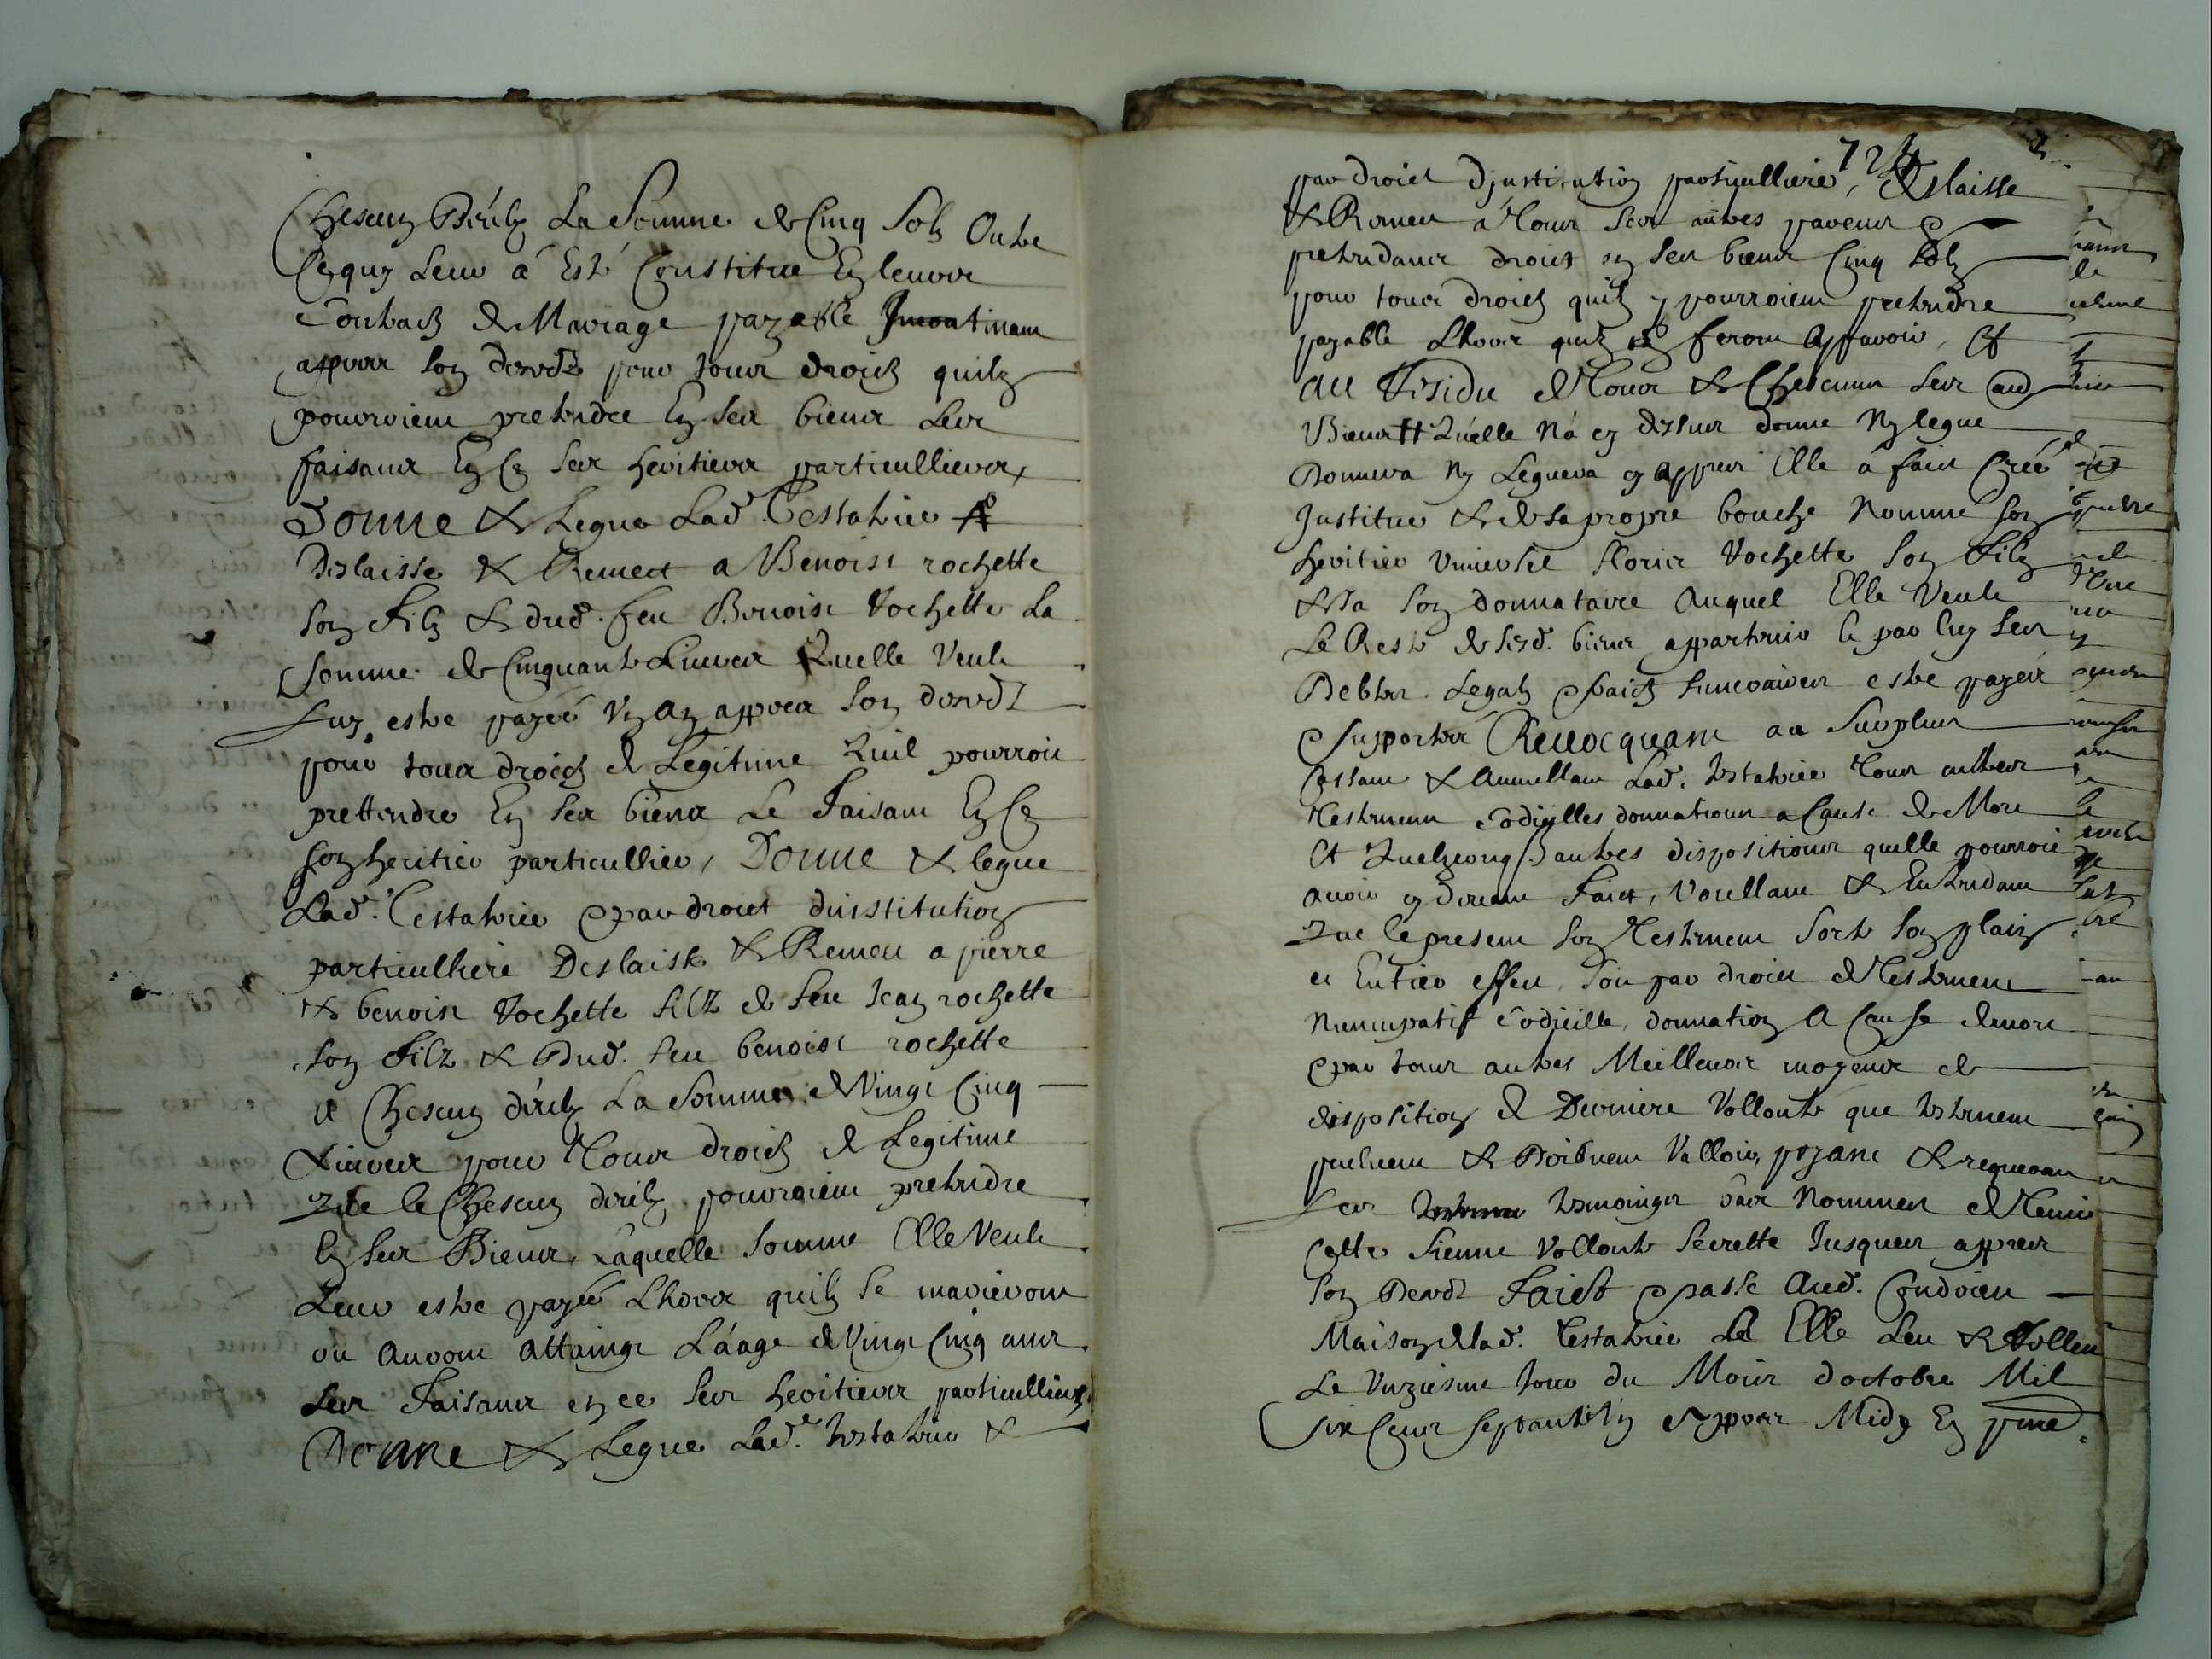 Chescung D'eulx La Somme de Cinq Solz Outre
Ce quy Leur á Esté Constitue En leurs
Contractz de Mariage payable Incontinam
appres son deced pour tous droictz quilz
pourroient pretendre En ses biens Les
faisans En Ce ses heritiers particulliers,
Donne & Legue Lad. Testatrice
Deslaisse & Remect a Benoist rochette
son filz & dud. feu Benoist Rochette La
somme de Cinquante Livres Quelle Veult
Luy estre payeé Ung An appres son deced
pour tous droictz de Legitime Quil pourroit
prettendre En ses biens Le Faisant En Ce
son heritier particullier, Donne & legue
Lad. Testatrice & par droict dinstitution
particulliere Deslaisse & Remect a pierre
& benoist Rochette filz de feu Jean rochette
son filz & Dud. feu benoist rochette
A Chescung d'eulx La Somme de Vingt Cinq
Livres pour Tous droictz de Legitime
Que le Chescung d'eulx pourroient pretendre
En ses Biens, Laquelle Somme Elle Veult
Leur estre payeé Lhors quilz se marieront
ou Auront Attaingt Láage de Vingt Cinq ans
Les Faisans en ce ses heritiers particulliers.
Donne & Legue Lad. Testatrice &
724
par droict d'institution particulliere, Deslaisse
& Remect á Tous ses autres parens &
pretendans droict en ses biens Cinq Solz
pour tous droictz quilz y pourroient pretendre
payable Lhors quilz se feront Apparoir, Et
Au Residu de Tous & Chescuns ses aud
Biens Quelle Ná cy dessus donne Ny legue
Donnera Ny Leguera cy Appres Elle á fait Creé
Institue & de sa propre bouche Nomme son
heritier Universel floris Rochette son filz
& Ja son donnataire Auquel Elle Veult
Le Reste de sesd. biens appartenir & par luy ses
Debtes Legatz & fraictz funeraires estre payeés
& supporteés Revocquant au Surplus
Cassant & Annullant Lad. testatrice Tous aultres
Testaments Codicilles donnations a Cause de Mort
Et Quelzconq autres dispositions quelle pourroit
avoir cy devant Faict, Voullant & Entendant
Que le present son Testament Sorte son plain
et Entier effect, soit par droict de Testament
Nuncupatif Codicille, donnation A Cause de mort
& par tous autres Meilleurs moyens de
disposition de Derniere Vollonte que testament
peulvent & Doibvent Valloir, pryant & requerant
Les tesmoings bas Nommes de Tenir
Cette Sienne Vollonte Secrette Jusques appres
Son Deced Faict & passe Aud. Condrieu
Maison de lad. Testatrice Elle Leu &
Le Unziesme Jour du Mois d'octobre Mil
Six Cens Septante Appres Midy En pnce.